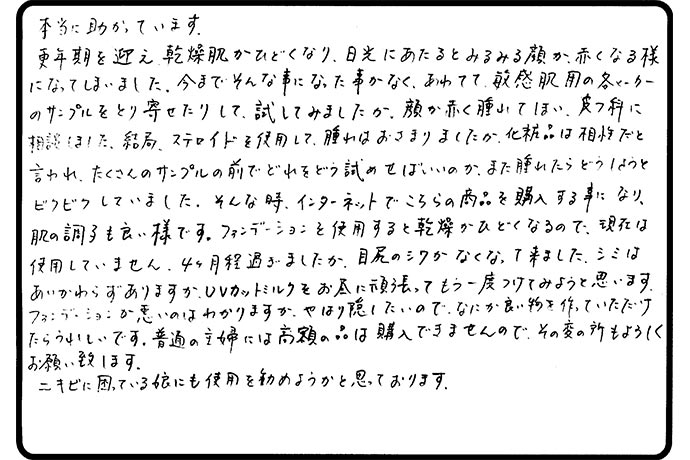 本当に助かっています.
更年期を迎え、乾燥肌がひどくなり、日光にあたるとみるみる顔が、赤くなる様
になってしまいました。今までそんな事になった事がなく、あわてて、敏感肌用の各メーカー
のサンプルをとり寄せたりして、試してみましたが、顔が赤く腫れてしまい、皮フ科に
相談しました。結局、ステロイドを使用して、腫れはおさまりましたが、化粧品は相性だと
言われ、たくさんのサンプルの前でどれをどう試めせばいいのか、また腫れたらどうしようと
ビクビクしていました。そんな時、インターネットでこちらの商品を購入する事になり、
肌の調子も良い様です。ファンデーションを使用すると乾燥がひどくなるので、現在は
使用していません。4ヶ月経過ぎましたが、目尻のシワがなくなって来ました。シミは
あいかわらずありますが、UVカットミルクをお昼に頑張ってもう一度つけてみようと思います.
ファンデーションが悪いのはわかりますが、やはり隠したいので、なにか良い物を作っていただけ
たらうれしいです。普通の主婦には高額の品は購入できませんので、その変の所もよろしく
お願い致します.
ニキビに困っている娘にも使用を勧めようかと思っております.